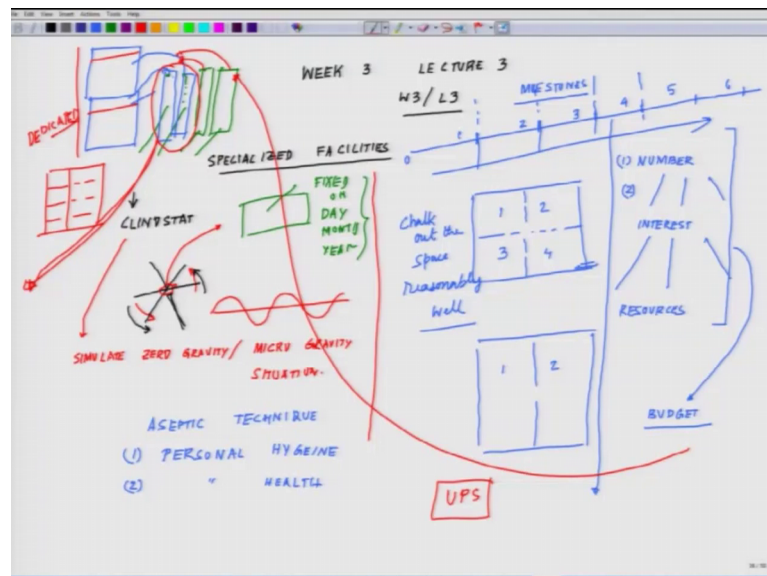 File Edit View Insert Actions Tools Help
WEEK 3 LECTURE 3
W3/L3
MILESTONES
0 1 2 3 4 5 6
DEDICATED
SPECIALIZED FACILITIES
CLINOSTAT
FIXED
OR
DAY
MONTH
YEAR
SIMULATE ZERO GRAVITY/ MICRO GRAVITY
SITUATION.
ASEPTIC TECHNIQUE
(1) PERSONAL HYGEINE
(2) " HEALTH
Chalk
out the
Space
Reasonably
Well
1 2
3 4
1 2
(1) NUMBER
(2)
INTEREST
RESOURCES
BUDGET
UPS